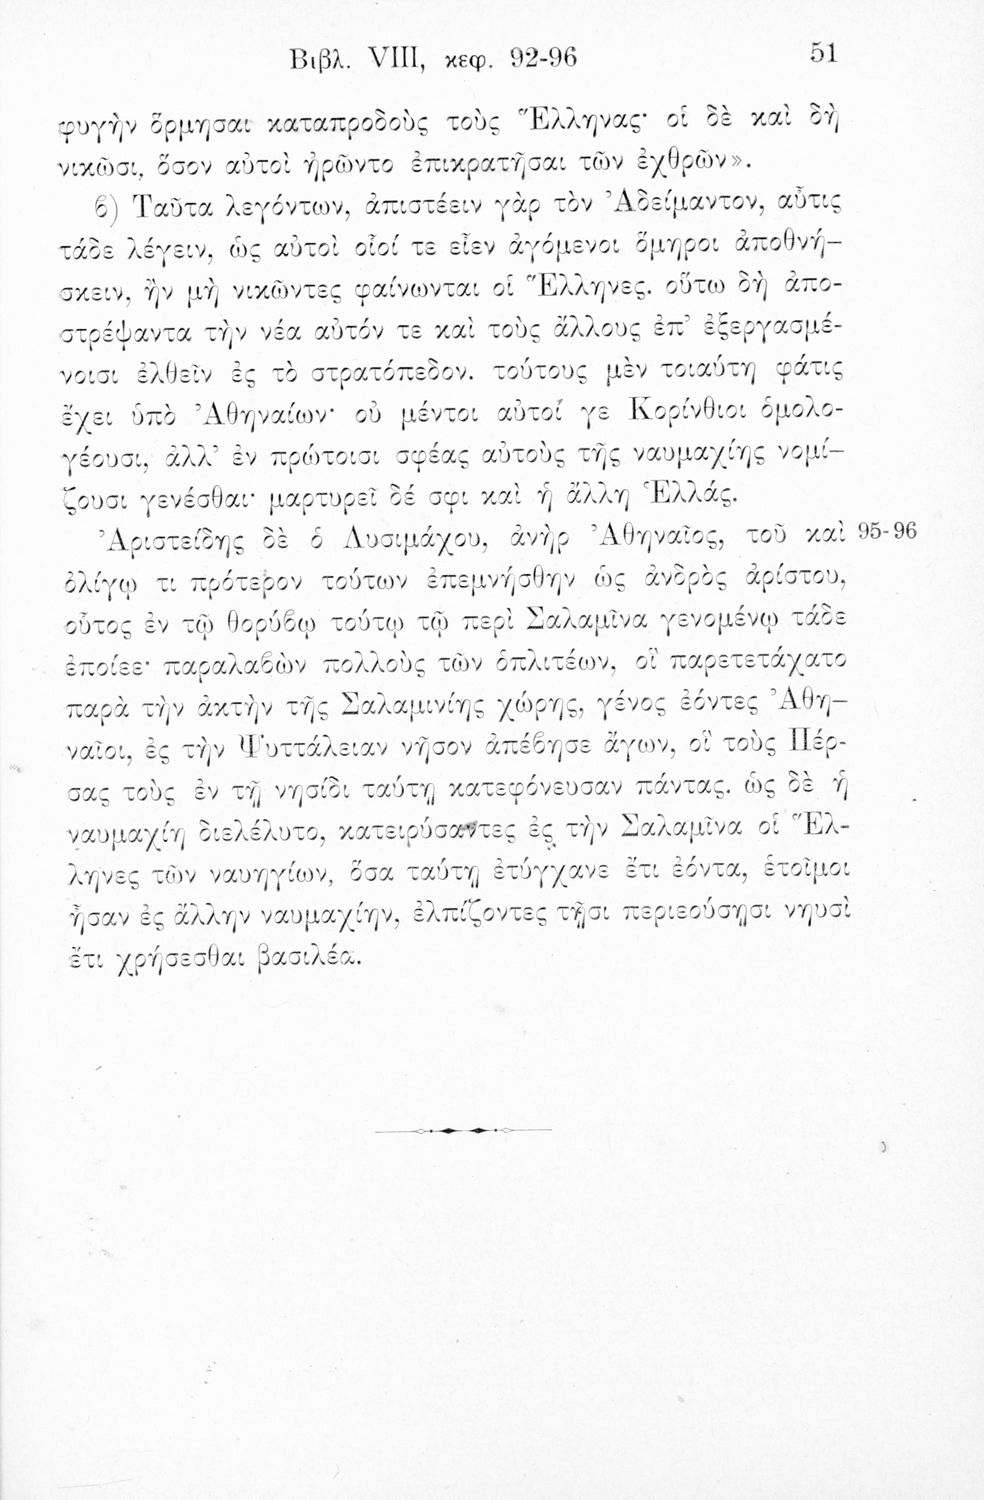 Βιβλ. VIII, κεφ. 92-96 51
φυγὴν ὅρμησαι καταπροδοὺς τοὺς Ἕλληνας· οἱ δὲ καὶ δὴ
νικῶσι, ὅσον αὐτοὶ ἠρῶντο ἐπικρατῆσαι τῶν ἐχθρῶν».
ϐ) Ταῦτα λεγόντων, ἀπιστέειν γὰρ τὸν Ἀδείμαντον, αὖτις
τάδε λέγειν, ὡς αὐτοὶ οἷοί τε εἶεν ἀγόμενοι ὅμηροι ἀποθνή-
σκειν, ἢν μὴ νικῶντες φαίνωνται οἱ Ἕλληνες. οὕτω δὴ ἀπο-
στρέψαντα τὴν νέα αὐτόν τε καὶ τοὺς ἄλλους ἐπ’ ἐξεργασμέ-
νοισι ἐλθεῖν ἐς τὸ στρατόπεδον. τούτους μὲν τοιαύτη φάτις
ἔχει ὑπὸ Ἀθηναίων· οὐ μέντοι αὐτοί γε Κορίνθιοι ὁμολο-
γέουσι, ἀλλ’ ἐν πρώτοισι σφέας αὐτοὺς τῆς ναυμαχίης νομί-
ζουσι γενέσθαι· μαρτυρεῖ δέ σφι καὶ ἡ ἄλλη Ἑλλάς.
Ἀριστείδης δὲ ὁ Λυσιμάχου, ἀνὴρ Ἀθηναῖος, τοῦ καὶ 95-96
ὀλίγῳ τι πρότερον τούτων ἐπεμνήσθην ὡς ἀνδρὸς ἀρίστου,
οὗτος ἐν τῷ θορύϐῳ τούτῳ τῷ περὶ Σαλαμῖνα γενομένῳ τάδε
ἐποίεε· παραλαϐὼν πολλοὺς τῶν ὁπλιτέων, οἳ παρετετάχατο
παρὰ τὴν ἀκτὴν τῆς Σαλαμινίης χώρης, γένος ἐόντες Ἀθη-
ναῖοι, ἐς τὴν Ψυττάλειαν νῆσον ἀπέϐησε ἄγων, οἳ τοὺς Πέρ-
σας τοὺς ἐν τῇ νησίδι ταύτῃ κατεφόνευσαν πάντας. ὡς δὲ ἡ
ναυμαχίη διελέλυτο, κατειρύσαντες ἐς τὴν Σαλαμῖνα οἱ Ἕλ-
ληνες τῶν ναυηγίων, ὅσα ταύτῃ ἐτύγχανε ἔτι ἐόντα, ἑτοῖμοι
ἦσαν ἐς ἄλλην ναυμαχίην, ἐλπίζοντες τῇσι περιεούσῃσι νηυσὶ
ἔτι χρήσεσθαι βασιλέα.